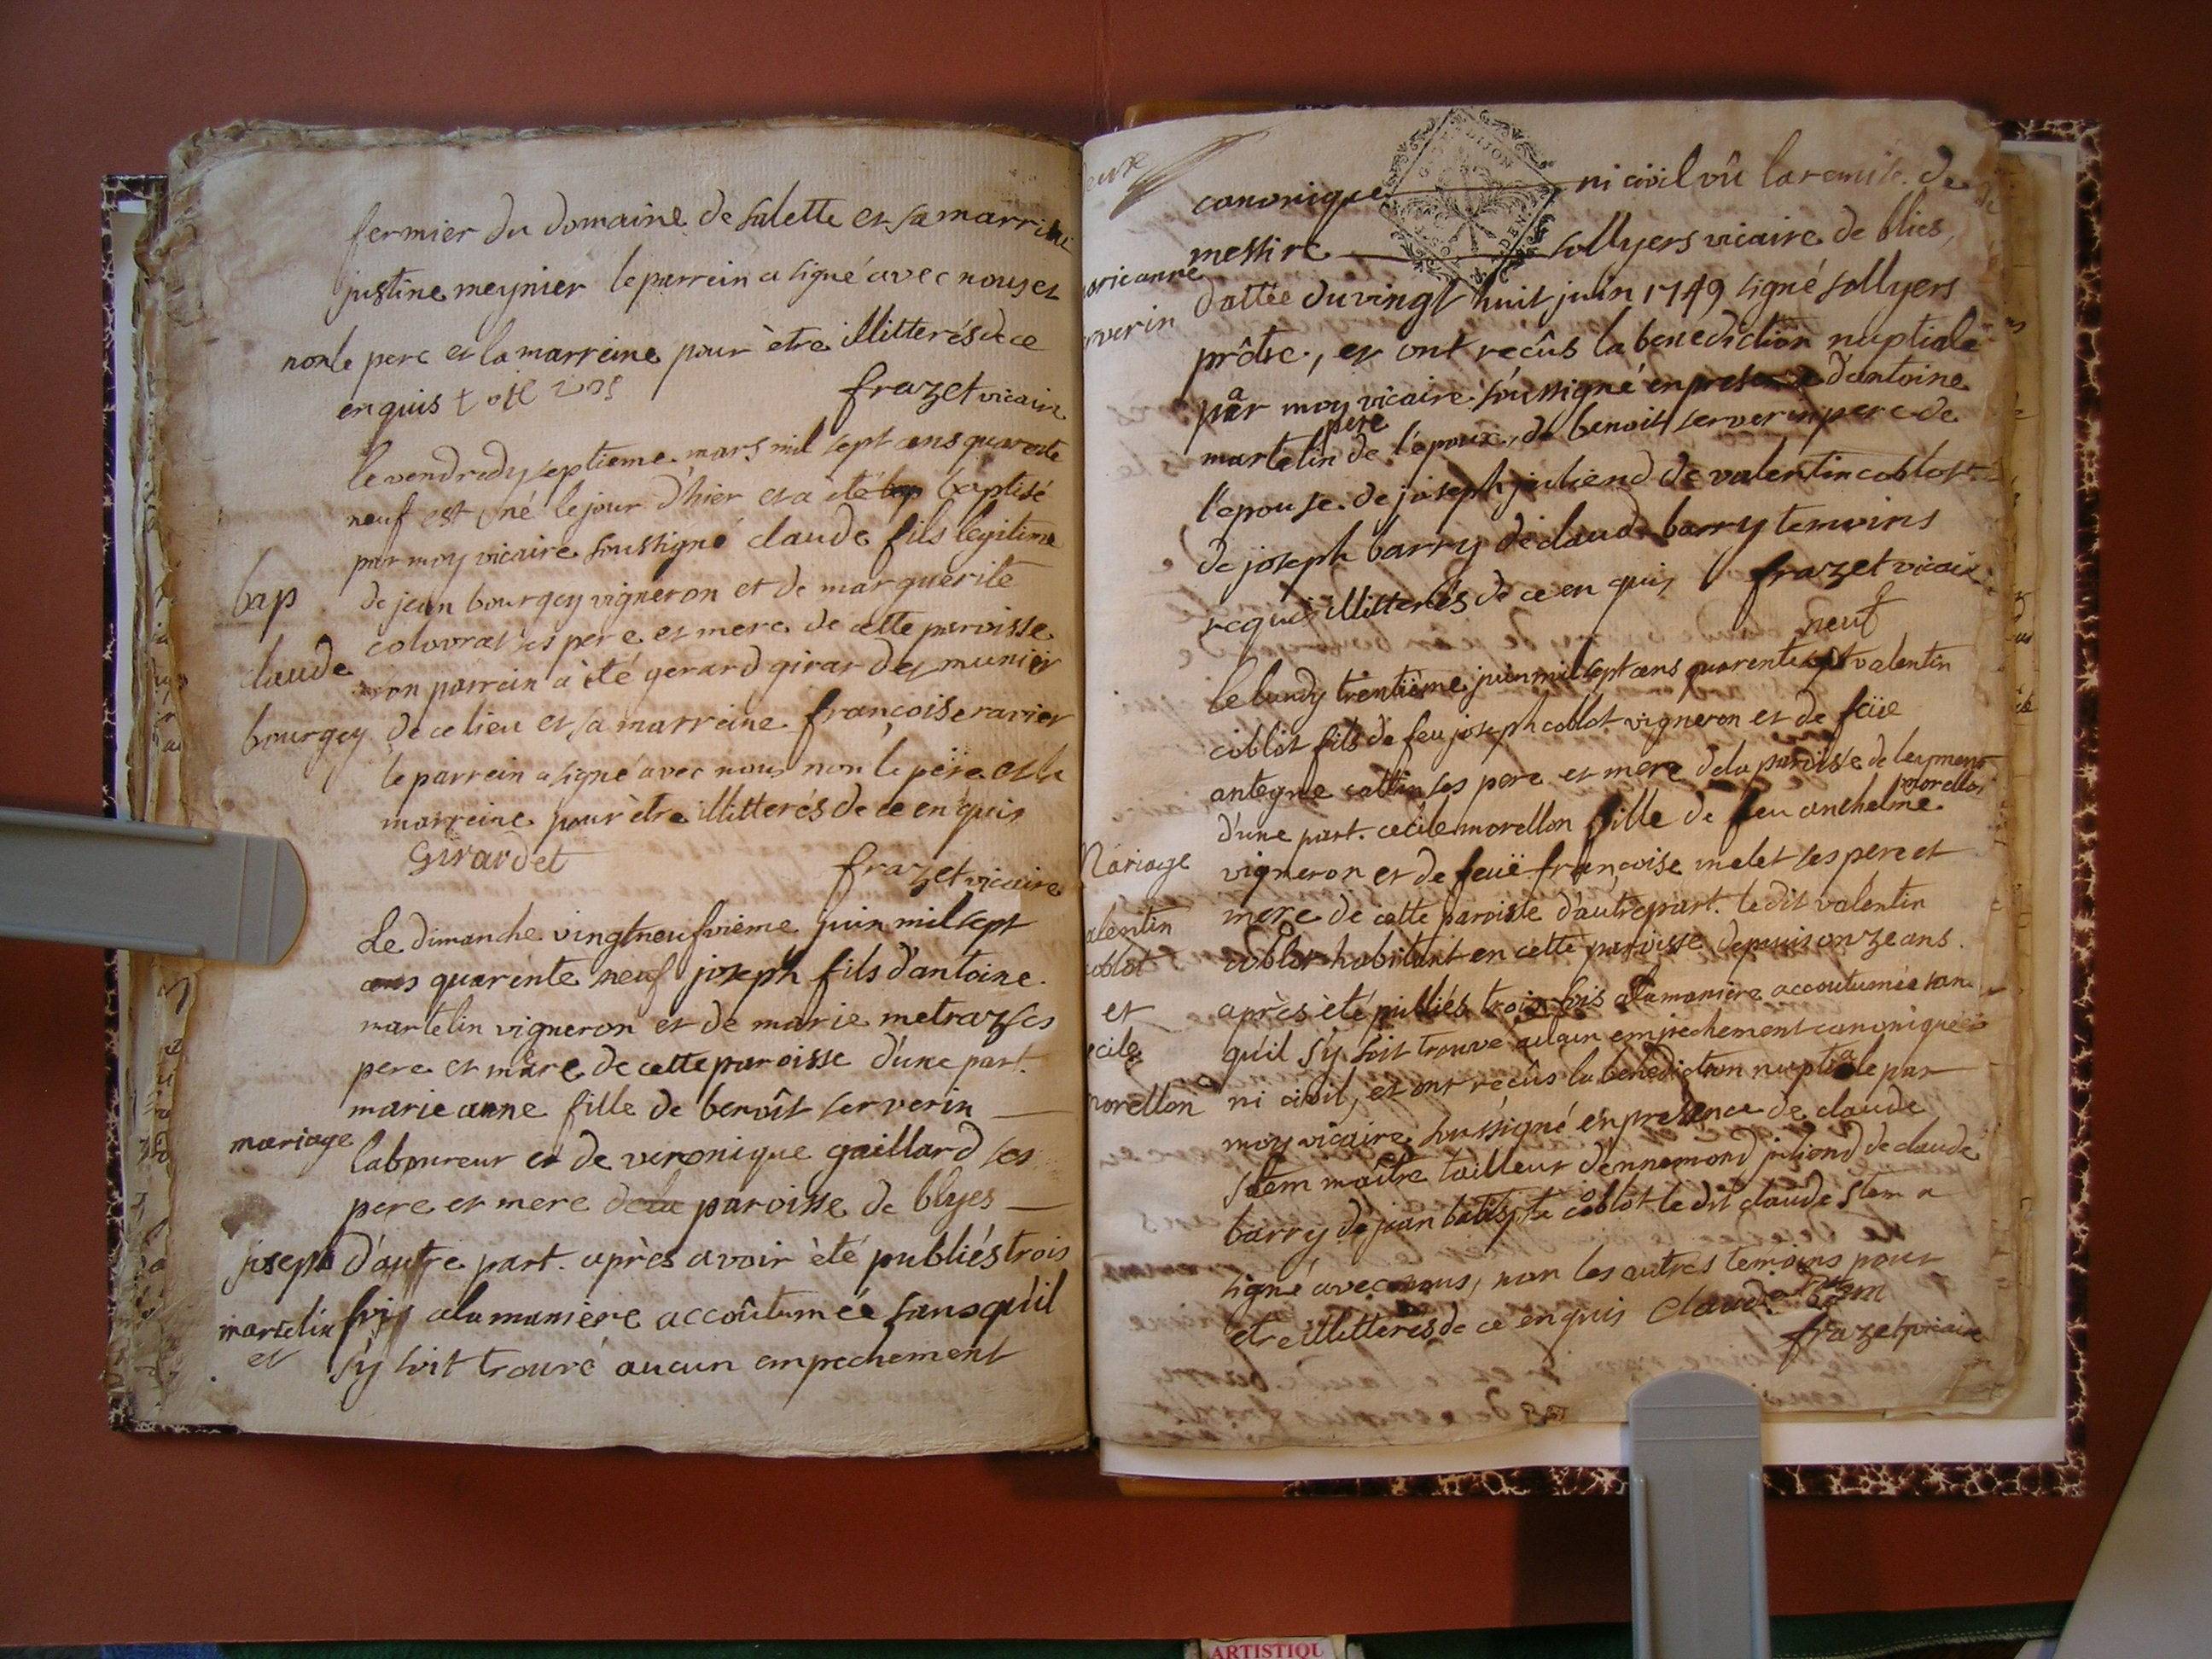 fermier du domaine de salette et sa marreine
justine meynier le parrein a signé avec nous et
non le pere et la marreine pour ètre illitterés de ce
enquis
frazet vicaire
le vendredy septieme mars mil sept cens quarente
neuf est né le jour d'hier et a èté baptisé
par moy vicaire soussigné claude fils legitime
bap
de jean bourgey vigneron et de marguerite
colovrat ses pere et mere de cette paroisse
claude
son parrein a èté gerard girardet munier
bourgey
de ce lieu et sa marreine françoise ravier
le parrein a signé avec nous non le père et la
marreine pour ètre illitterés de ce enquis
Girardet
frazet vicaire
Le dimanche vingtneufvième juin mil sept
cens quarente neuf joseph fils d'antoine
martelin vigneron et de marie metraz ses
pere et mère de cette paroisse d'une part.
marie anne fille de benoît serverin
mariage
laboureur et de veronique gaillard ses
pere et mere de la paroisse de blyes
joseph
d'autre part. après avoir èté publiés trois
martelin
fois a la maniere accoûtumée sans qu'il
et
s'y soit trouvé aucun empechement
canonique ni civil vû la remise de
messire sollyers vicaire de blies,
marie anne
dattée du vingt huit juin 1749 signé sollyers
serverin
prêtre, et ont recûs la benediction nuptiale
par moy vicaire soussigné en presence d'antoine
martelin pere de l'epoux, de benoit serverin pere de
l'epouse de joseph juliend de valentin coblot
de joseph barry de claude barry temoins
requis illitterés de ce enquis frazet vicaire
neuf
le lundy trentième juin mil sept cens quarente sept valentin
coblot fils de feu joseph coblot vigneron et de feüe
antegne cattin ses pere et mere de la paroisse de leyment
morellon
d'une part. cecile morellon fille de feu anchelme
Mariage
vigneron et de feüe françoise melet ses pere et
valentin
mere de cette paroisse d'autre part. le dit valentin
coblot
coblot habitant en cette paroisse depuis onze ans.
et
après èté publiés trois fois a la maniere accoutumée sans
cecile
qu'il s'y soit trouve aucun empechement canonique
morellon
ni civil, et ont recûs la benediction nuptiale par
moy vicaire soussigné en presence de claude
stem maître tailleur d'ennemond juliend de claude
barry de jean batispte coblot le dit claude stem a
signé avec nous, non les autres temoins pour
etre illitterés de ce enquis Claude Stem
frazet vicaire
ARTISTIQU